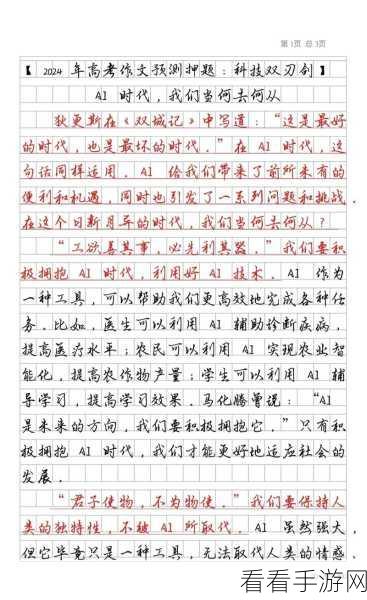 第1页 总3页
【 2024 年高考作文预测押题：科技双刃剑 】
AI 时代，我们当何去何从
狄更斯在《双城记》中写道：“这是最好
的时代，也是最坏的时代.”在 AI 时代，这
句话同样适用. AI 给我们带来了前所未有的
便利和机遇，同时也引发了一系列问题和挑战.
在这个日新月异的时代，我们当何去何从？
“工欲善其事，必先利其器.”我们要积
极拥抱 AI 时代，利用好 AI 技术. AI 作为
一种工具，可以帮助我们更高效地完成各种任
务. 比如，医生可以利用 AI 辅助诊断疾病，
提高医疗水平；农民可以利用 AI 实现农业智
能化，提高农作物产量；学生可以利用 AI 辅
导学习，提高学习效果. 马化腾曾说：“AI
是未来的方向，我们要积极拥抱它.”只有积
极拥抱 AI 时代，我们才能更好地适应社会的
发展.
“君子使物，不为物使.”我们要保持人
类的独特性，不被 AI 所取代. AI 虽然强大，
但它毕竟只是一种工具，无法取代人类的情感、
看看手游网